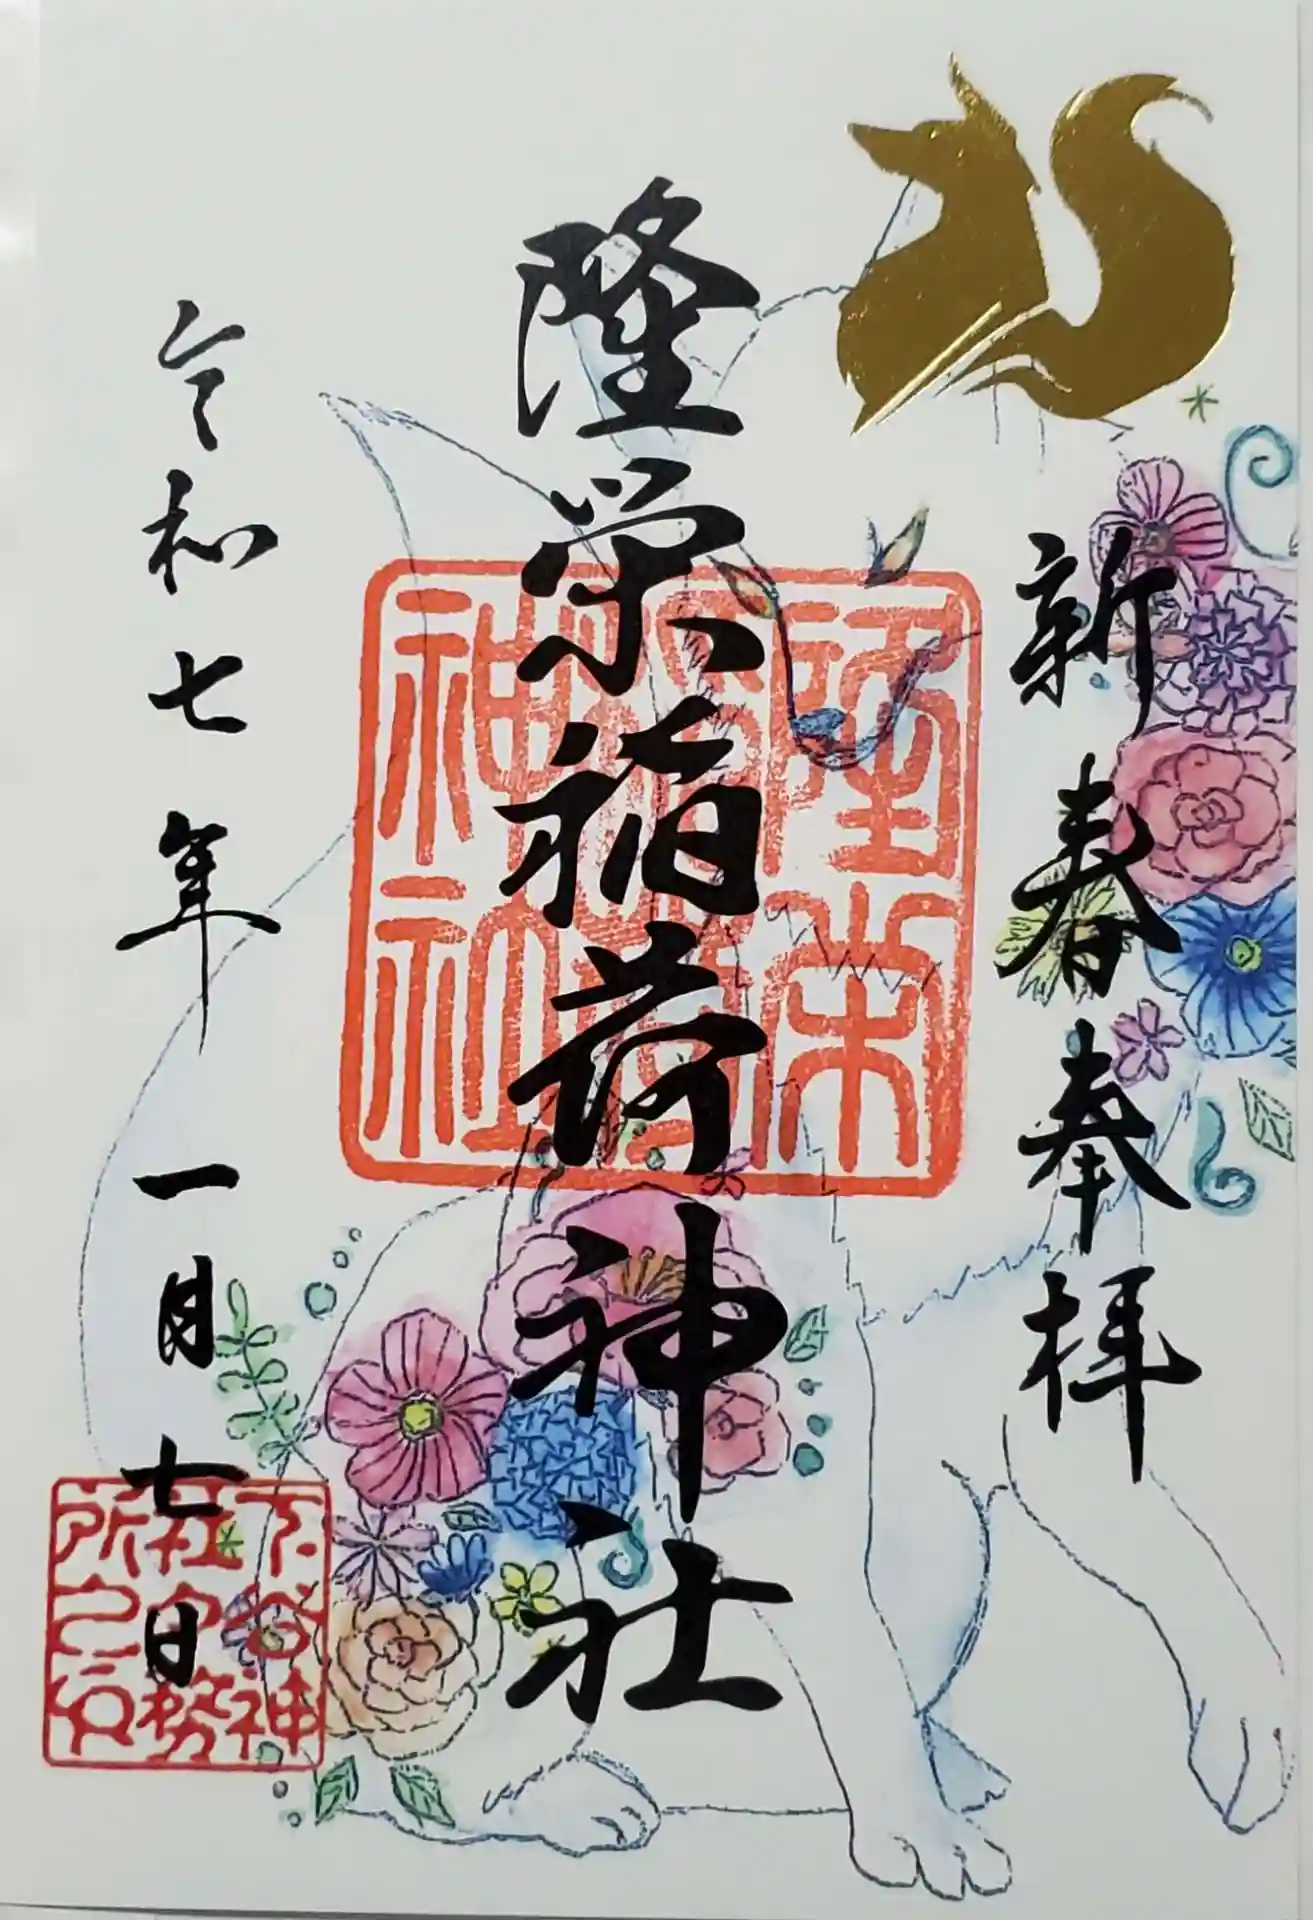 新春奉拝
隆栄稲荷神社
隆栄
稲荷
神社
令和七年一月七日
下谷神
社守務
所之印